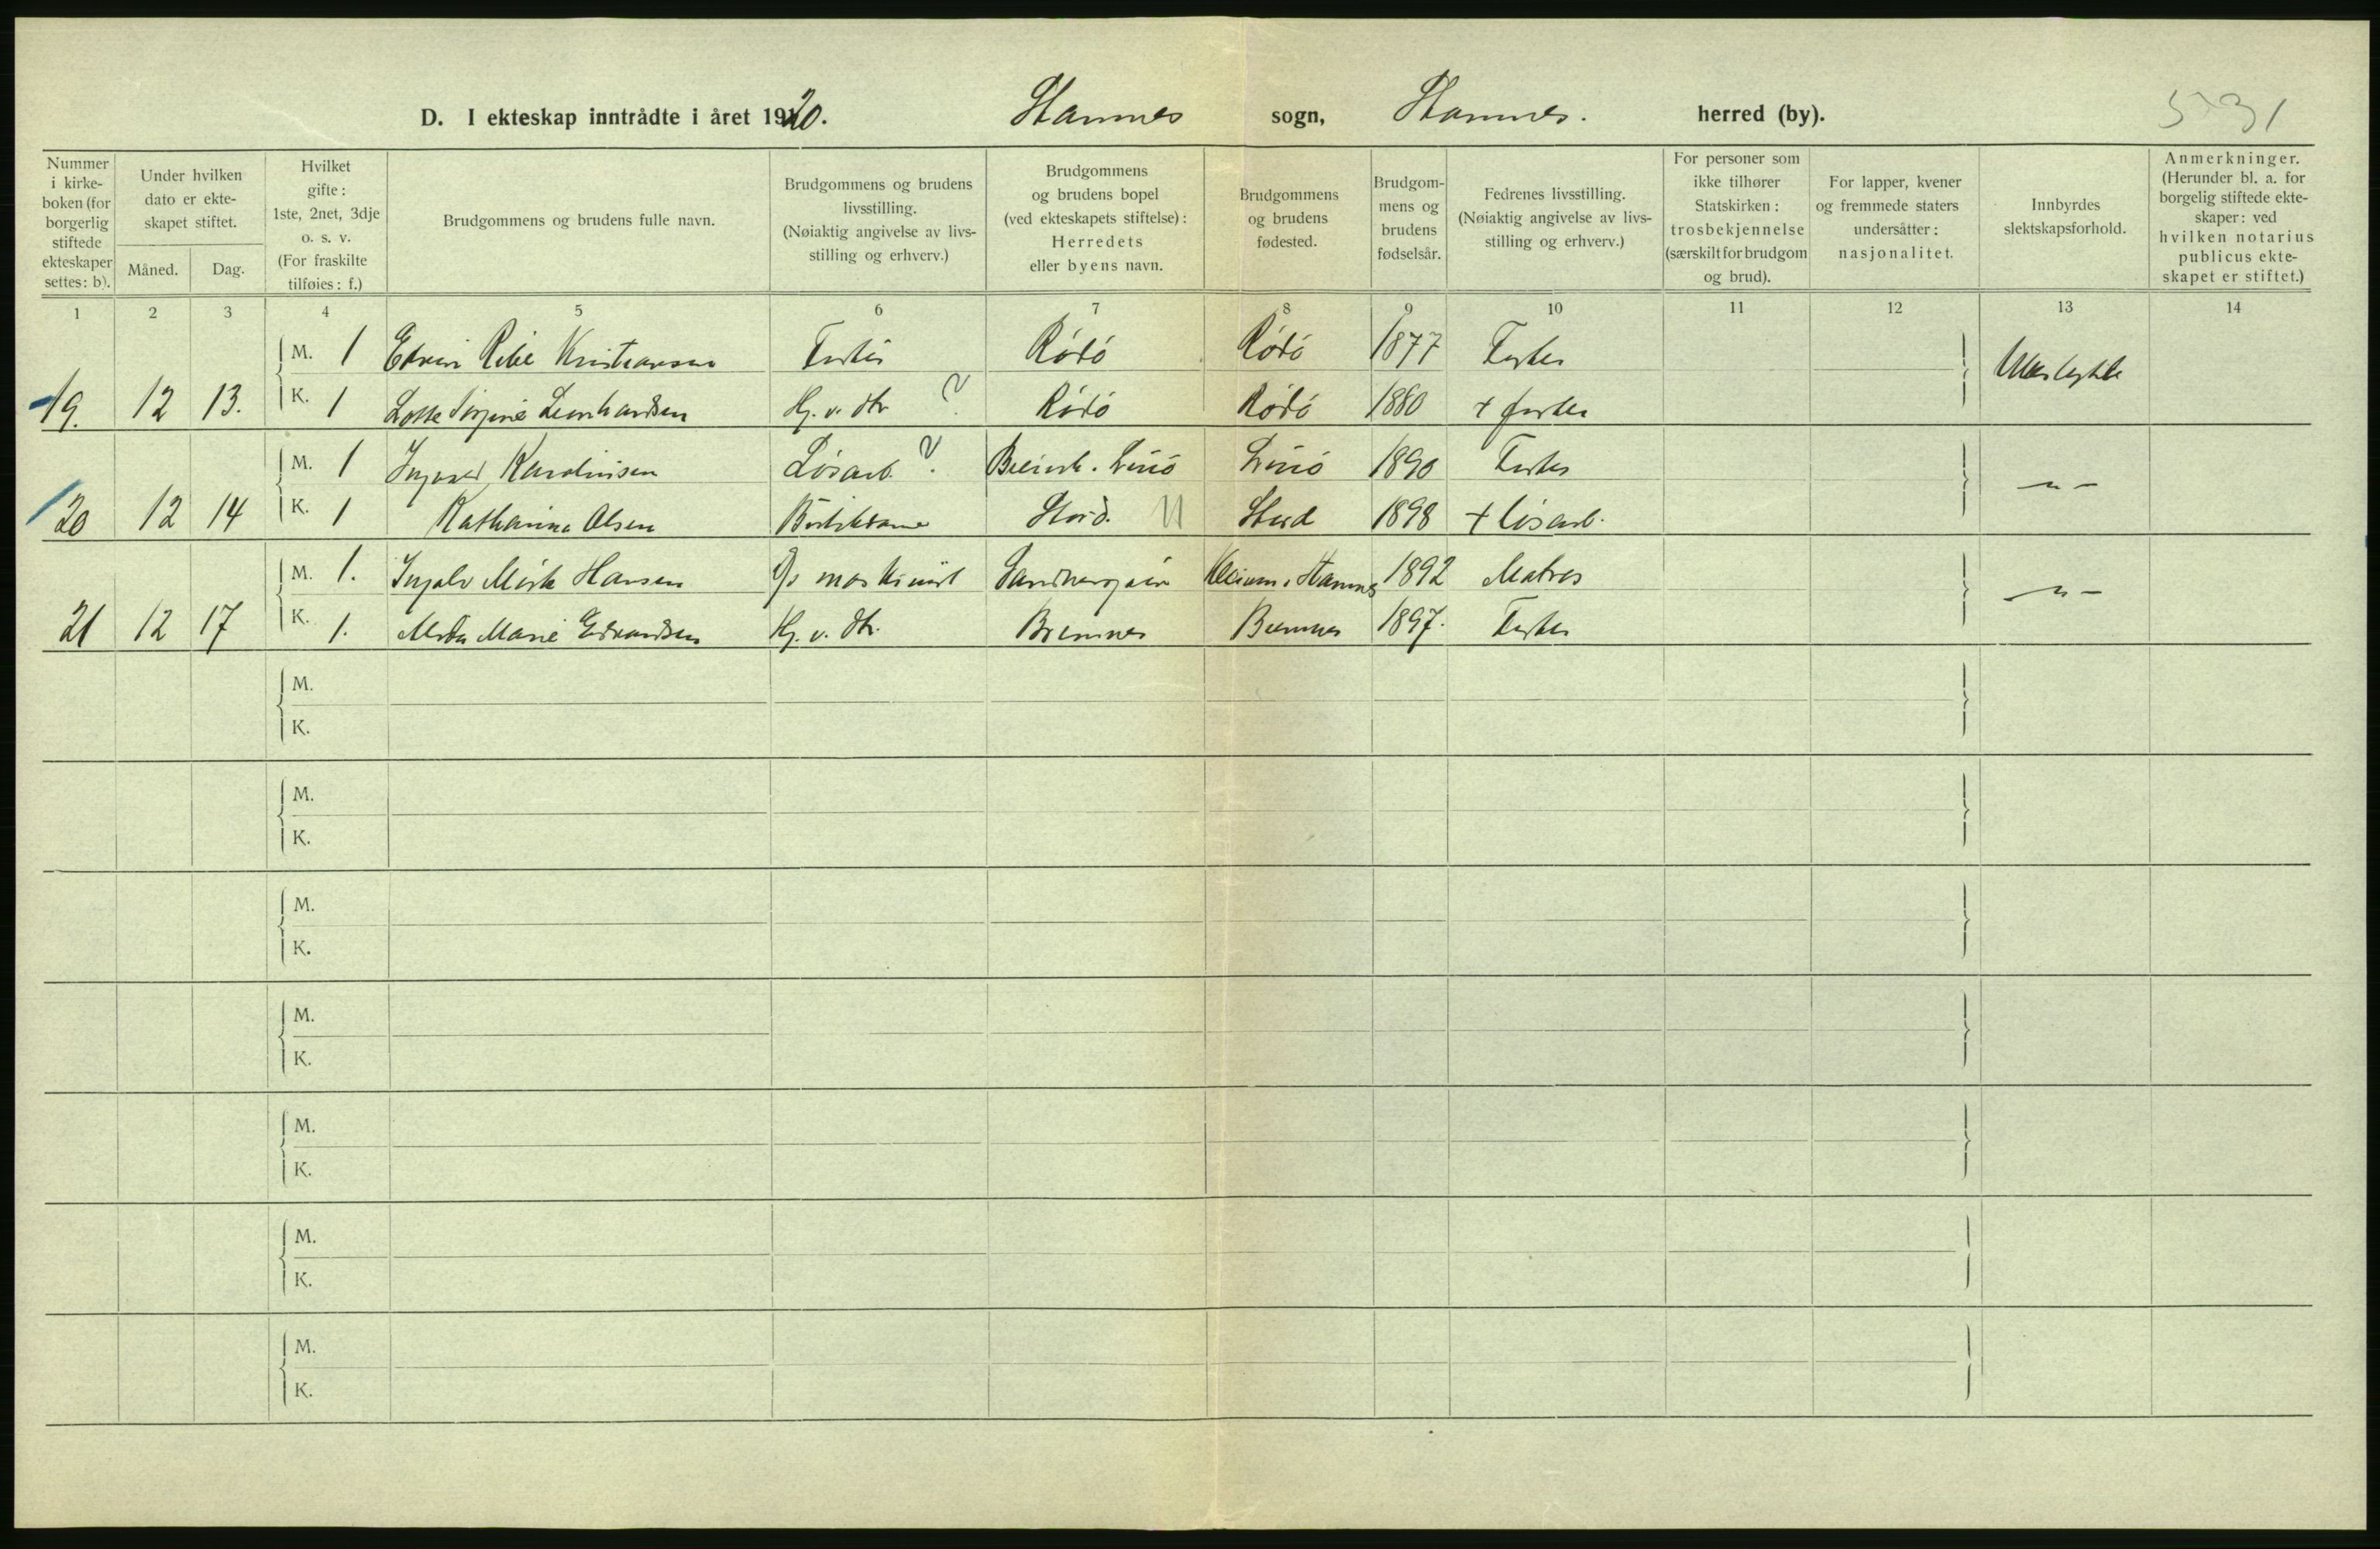 D. I ekteskap inntrådte i året 1920. Stamnes sogn, Stamnes. herred (by). 531
Nummer i kirkeboken (for borgerlig stiftede ekteskaper settes: b).
Under hvilken dato er ekteskapet stiftet.
Måned. Dag.
Hvilket gifte: 1ste, 2net, 3dje o. s. v. (For fraskilte tilføies: f.)
Brudgommens og brudens fulle navn.
Brudgommens og brudens livsstilling. (Nøiaktig angivelse av livsstilling og erhverv.)
Brudgommens og brudens bopel (ved ekteskapets stiftelse): Herredets eller byens navn.
Brudgommens og brudens fødested.
Brudgommens og brudens fødselsår.
Fedrenes livsstilling. (Nøiaktig angivelse av livsstilling og erhverv.)
For personer som ikke tilhører Statskirken: trosbekjennelse (særskilt for brudgom og brud).
For lapper, kvener og fremmede staters undersåtter: nasjonalitet.
Innbyrdes slektskapsforhold.
Anmerkninger. (Herunder bl. a. for borgelig stiftede ekteskaper: ved hvilken notarius publicus ekteskapet er stiftet.)
1 2 3 4 5 6 7 8 9 10 11 12 13 14
M. 1 Kristiansen Rödö Rödö 1877 Fisker
19. 12 13. K. 1 Leonhardsen Hj. v. dtr ? Rödö Rödö 1880 + fisker
M. 1 Ingvard Karolinsen Lösarb. ? 1890 Fisker
20 12 14 K. 1 Katharina Olsen Stord. Stord 1898 + lösarb.
M. 1. Ingolv Mörk Hansen maskinist 1892 Matros
21 12 17 K. 1. Marie Edvardsen Hj. v. dtr. Bremnes Bremnes 1897. Fisker
M.
K.
M.
K.
M.
K.
M.
K.
M.
K.
M.
K.
M.
K.